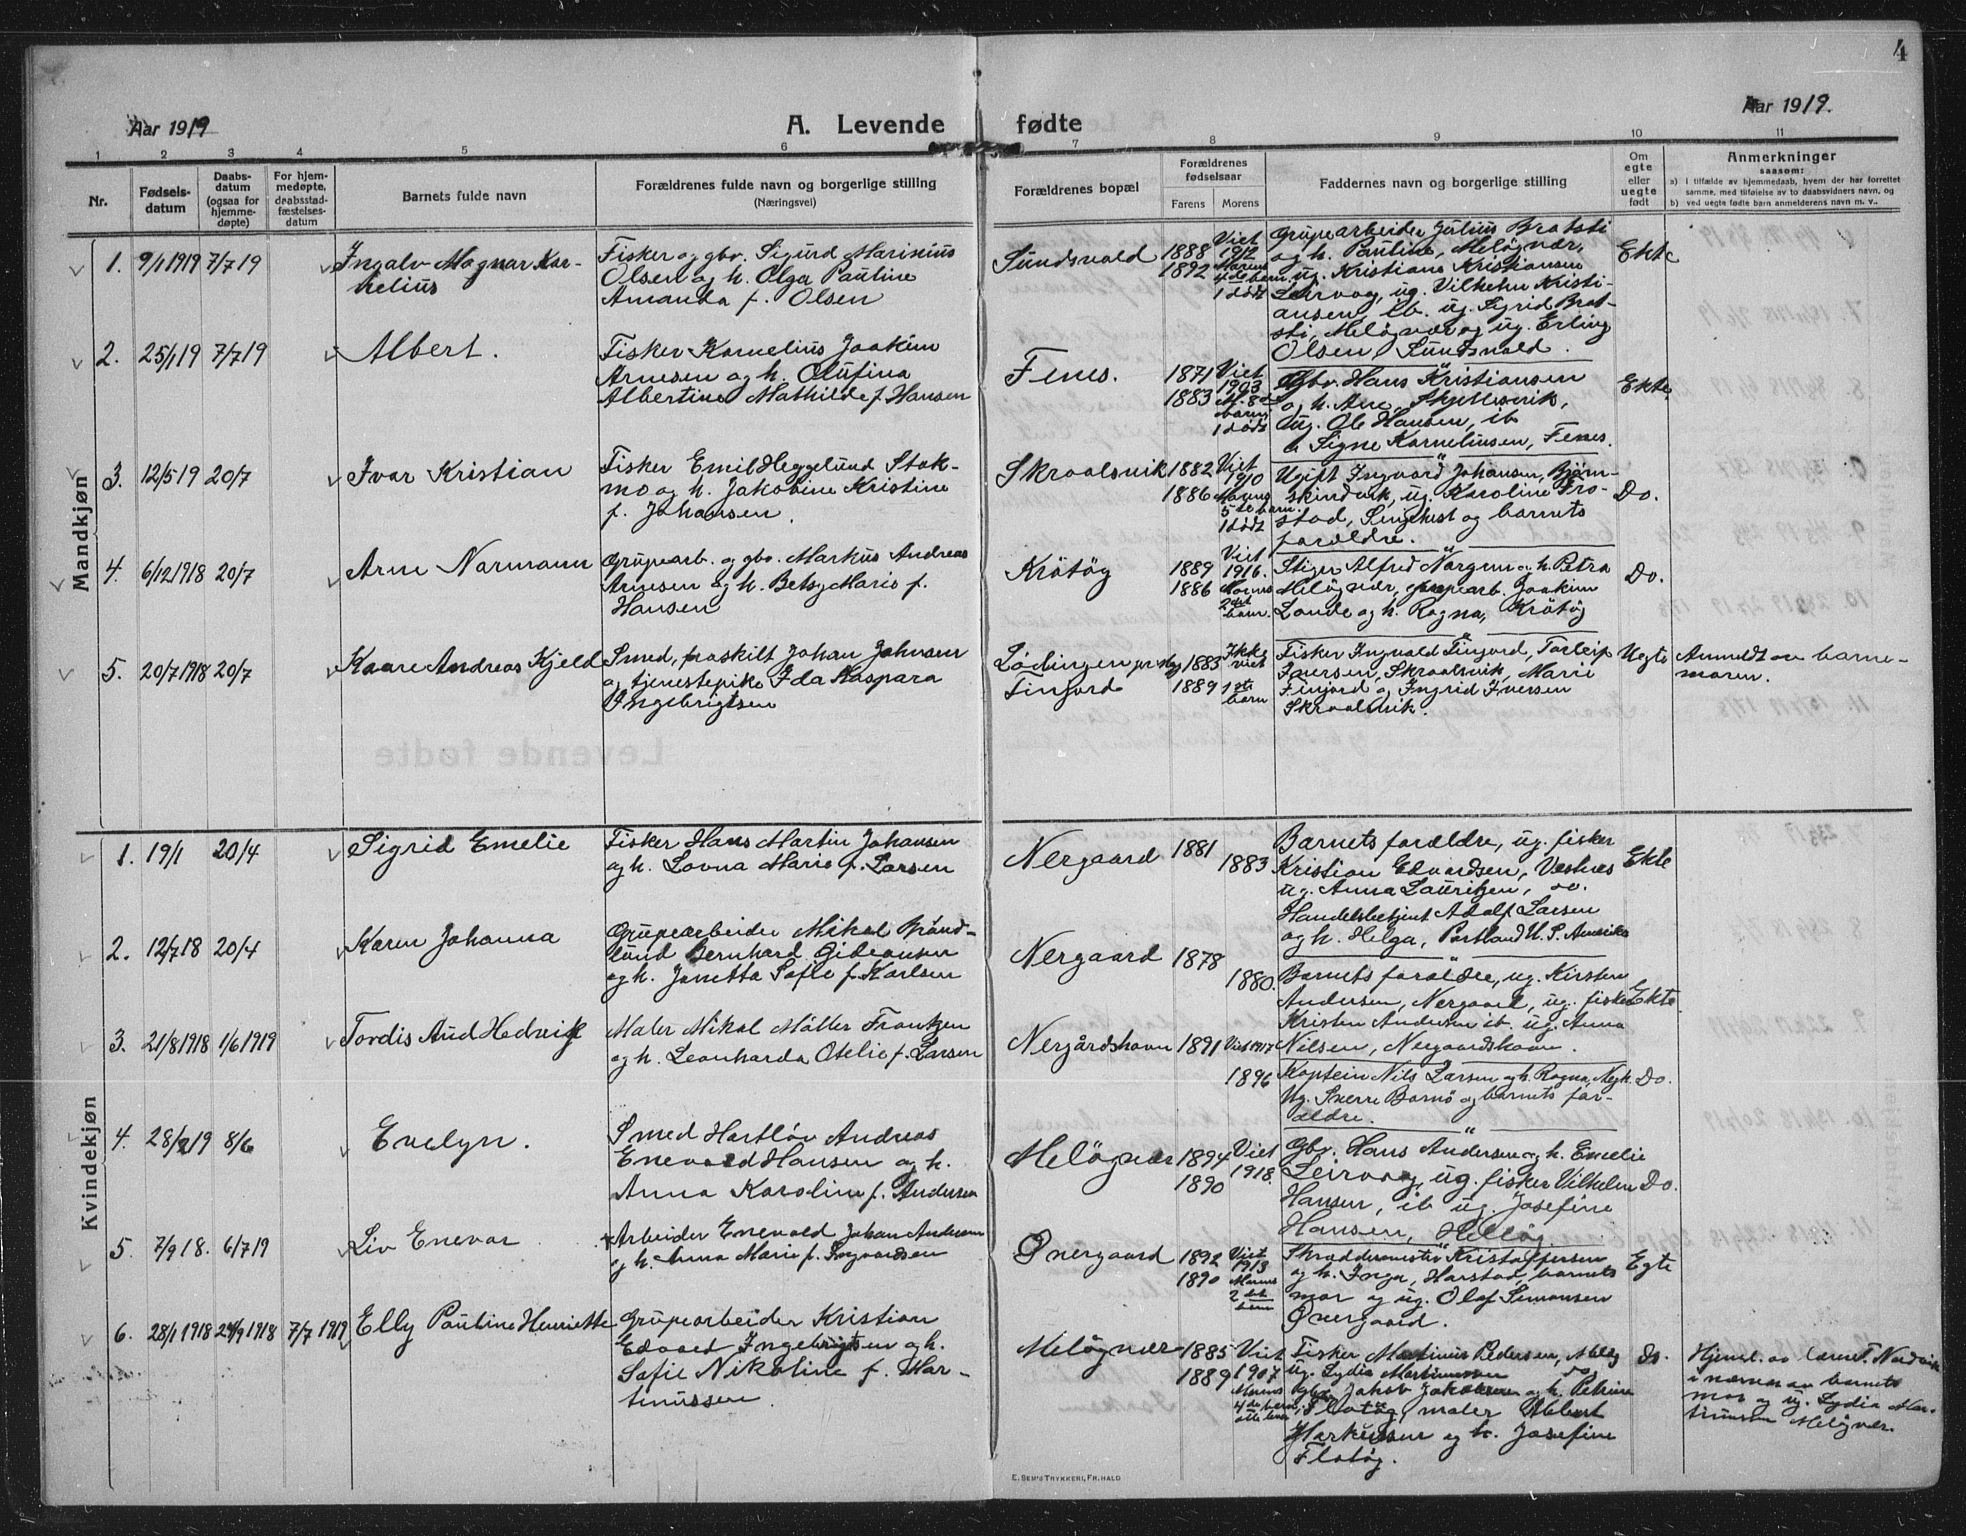 4
Aar 1919
A. Levende fødte
Aar 1919.
1 2 3 4 5 6 7 8 9 10 11
Nr.
Fødsels-
datum
Daabs-
datum
(ogsaa for
hjemme-
døpte)
For hjem-
medøpte,
daabsstad-
fæstelses-
datum
Barnets fulde navn
Forældrenes fulde navn og borgerlige stilling
(Næringsvei)
Forældrenes bopæl
Forældrenes
fødselsaar
Farens Morens
Faddernes navn og borgerlige stilling
Om
egte
eller
uegte
født
Anmerkninger
saasom:
a) I tilfælde av hjemmedaab, hvem der har forrettet
samme, med tilføielse av to daabsvidners navn, og
b) ved uegte fødte barn anmelderens navn m. v.,
Mandkjøn
1. 9/1 1919 7/7 19
Ingalv Magnar Kor-
nelius
Fisker og gbr. Sigurd Marinius
Olsen og h. Olga Pauline
Amanda f. Olsen
Sundsvold
1888
1892
Viet
1912
Morens
4de barn
1 dødt
Grupearbeider Julius Bratsti
og h. Pauline, Meløyvær,
ug. Kristiane Kristiansen
Leirvog, ug. Vilhelm Kristi-
ansen, ib. ug. Sigrid Brat-
sti, Meløyvær og ug. Erling
Olsen Sundsvold.
Ekte
2. 25/1 19 7/7 19
Albert.
Fisker Kornelius Joakim
Arnesen og h. Olufina
Albertine Mathilde f. Hansen
Fenes.
1871
1883
Viet
1903
M. 8de
barn
1 dødt
Gbr. Hans Kristiansen
og h. Ane, Skjellesvik,
ug. Ole Hansen, ib
o Signe Korneliussen, Fenes.
Ekte
3. 12/5 19 20/7
Ivar Kristian
Fisker Emil Heggelund Stok-
mo og h. Jakobine Kristine
f. Johansen.
Skroalsvik
1882
1886
Viet
1910
Morens
5te barn.
1 dødt
Ugift Ingvard Johansen, Bjørn-
skindvik, ug. Karoline Fro-
stad, Senjehest og barnets
forældre.
Do.
4. 6/12 1918 20/7
Arne Normann
Grupearb. og gbr. Markus Andreas
Arnesen og h. Betsy Marie f.
Hansen
Krøtøy
1889
1886
Viet
1916.
Morens
2det
barn.
Stiger Alfred Norgren og h. Petra
Meløyvær, grupearb. Joakim
Lande og h. Ragna, Krøtøy
Do.
5. 20/7 1918 20/7
Kaare Andreas Kjeld
Smed, fraskilt Johan Johnsen
og tjenestepike Ida Kaspara
Ingebrigtsen
Lødingen
Finjord
1883
1889
Ikke
viet
1ste
barn
Fisker Ingvald Finjord, Torleif
Iversen, Skroalsvik, Marie
Finjord og Ingrid Iversen
Skroalsvik.
Uegte
Anmeldt av barne-
moren.
Kvindekjøn
1. 19/1 20/4
Sigrid Emelie
Fisker Hans Martin Johansen
og h. Lovna Marie f. Larsen
Nergaard
1881
1883
Barnets forældre, ug. fisker
Kristian Edvardsen, Vestnes
ug. Anna Lauritzen, do.
Handelsbetjent Adolf Larsen
og h. Helga, Portland U. S. Amerika
Ekte
2. 12/7 18 20/4
Karen Johanna
Grupearbeider Mikal Brand-
lund Bernhard Gideonsen
og h. Janetta Sofie f. Karlsen
Nergaard
1878
1880.
Barnets forældre, ug. Kirsten
Andersen, Nergaard, ug. fisker
Kristen Andersen ib. ug. Anna
Nilsen, Nergaardshavn.
Ekte
3. 21/8 1918 1/6 1919
Tordis Aud Hedvig
Maler Mikal Møller Frantzen
og h. Leonharda Otelie f. Larsen
Nergårdshavn
1891
1896
Viet 1917
Kaptein Nils Larsen og h. Ragna, Negh.
Ug. Sverre Bornø og barnets for-
ældre.
Do.
4. 28/2 19 8/6
Evelyn.
Smed Hartløv Andreas
Enevold Hansen og h.
Anna Karoline f. Andersen
Meløyvær
1894
1890
Viet
1918.
Gbr. Hans Andersen og h. Emelie
Leirvog, ug. fisker Vilhelm
Hansen, ib ug. Josefine
Hansen, Meløy.
Do.
5. 7/9 18. 6/7 19
Liv Enevar
Arbeider Enevald Johan Andersen
og h. Anna Marie f. Ingvardsen
Øvergaard
1892
1890
Viet
1913
Morens
2det
barn
Skræddermester Kristoffersen
og h. Inga, Harstad, barnets
mor og ug. Olaf Simonsen
Øvergaard.
Egte
6. 28/1 1918 24/9 1918 7/7 1919
Elly Pauline Henriette
Grupearbeider Kristian
Edvard Ingebrigtsen og h.
Sofie Nikoline f. Mar-
tinussen
Meløyvær
1885
1889
Viet
1907
Morens
4de barn
alle lever
Fisker Martinus Pedersen, Meløy
ug. Lydia Martinussen do
Gbr. Jakob Jakobsen og h. Petrine
Flatøy, maler Albert
Markussen og h. Josefine
Flatøy.
Do.
Hjemd. av lærer T. Nordvik
i nærvær av barnets
mor og ug. Lydia Mar-
tinussen Meløyvær.
E. SEM'S TRYKKERI, FR.HALD